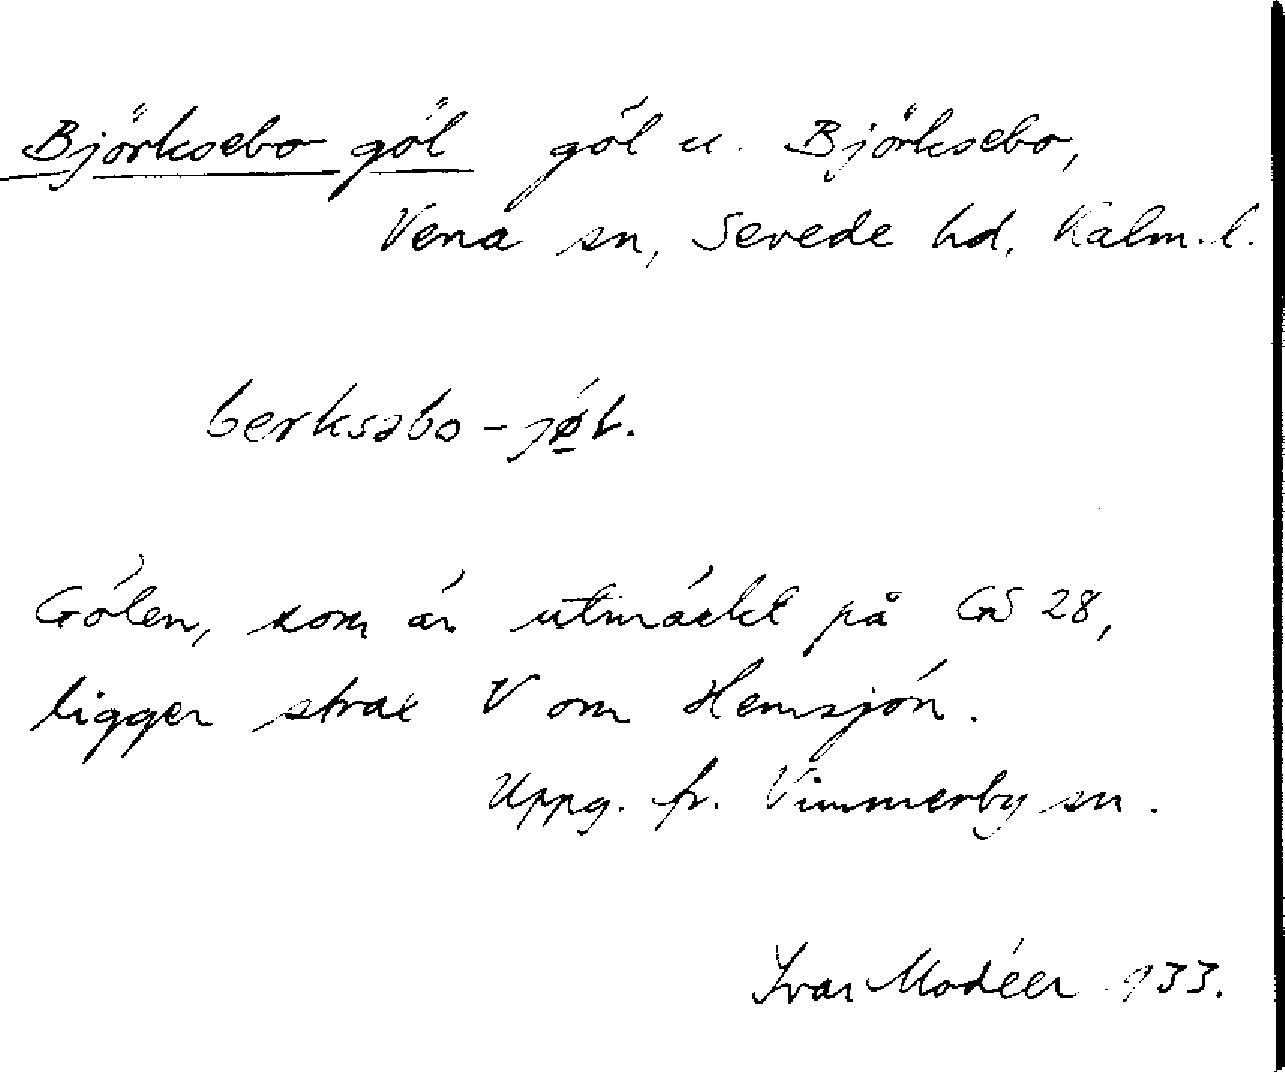 Björksebo göl göl u. Björksebo,
Vena sn, Sevede hd, Kalm. l.
berksəbo-jǿ̱l.
Gölen, som är utmärkt på GS 28,
ligger strax V om Hemsjön.
Uppg. fr. Vimmerby sn.
Ivar Modéer 933.